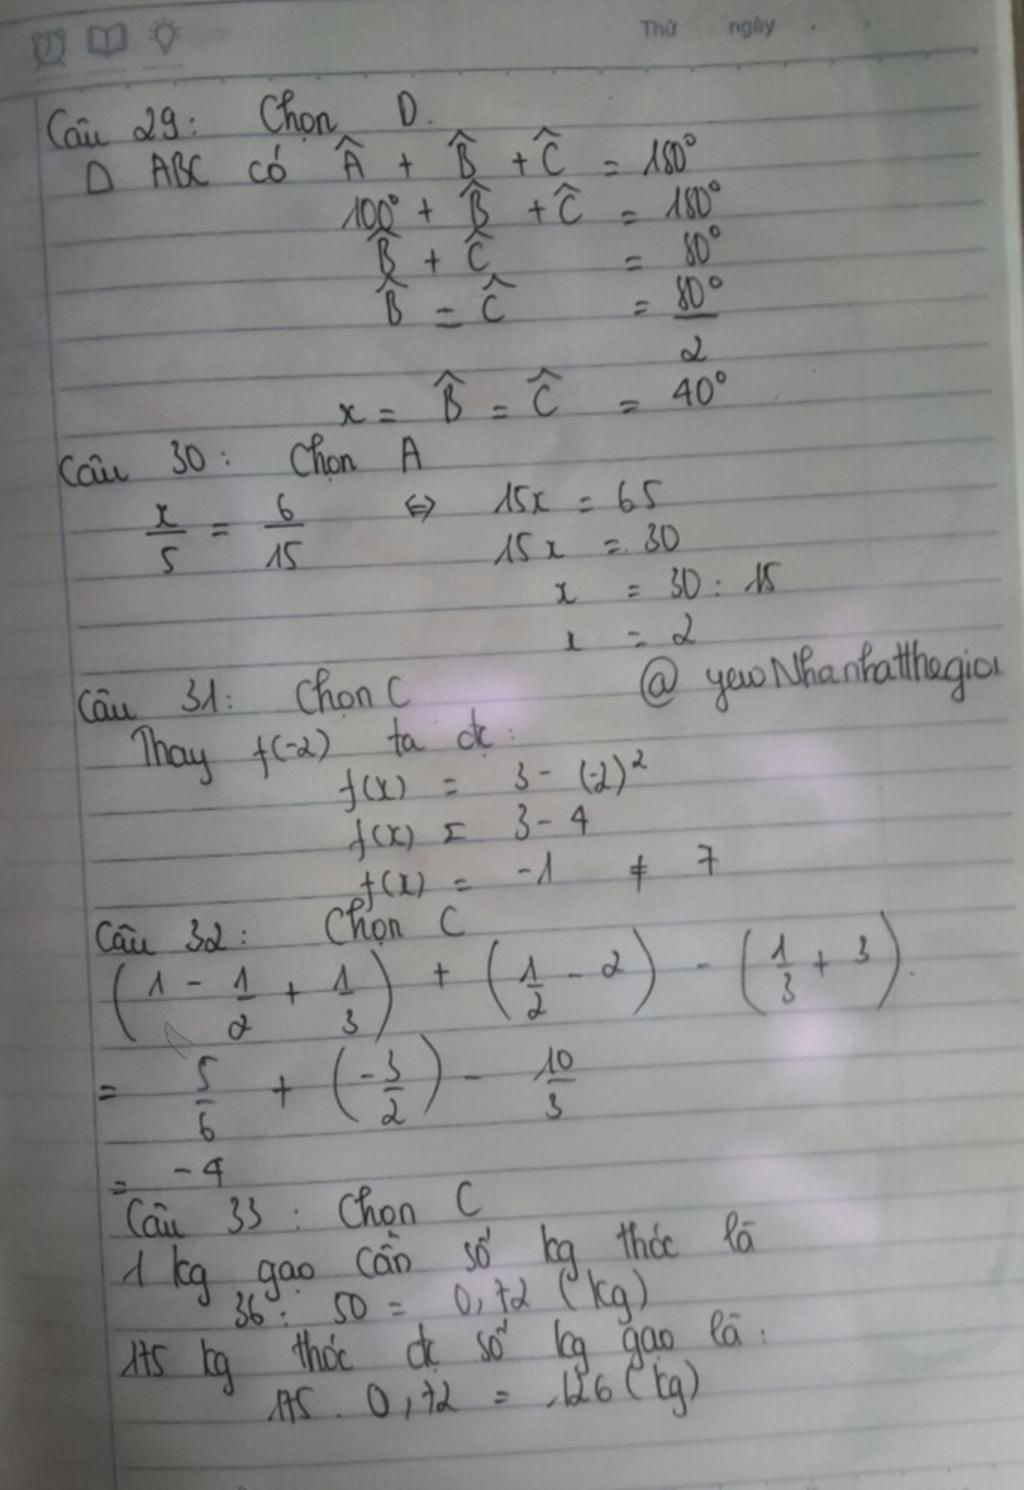 Thứ ngày
Câu 29: Chọn D.
Δ ABC có Â + B̂ + Ĉ = 180°
100° + B̂ + Ĉ = 180°
B̂ + Ĉ = 80°
B̂ = Ĉ = 80°/2
x = B̂ = Ĉ = 40°
Câu 30: Chọn A
x/5 = 6/15 ⇔ 15x = 65
15x = 30
x = 30 : 15
x = 2
@ yewNhanhatthegioi
Câu 31: Chọn C
Thay f(-2) ta đc:
f(x) = 3 - (-2)²
f(x) = 3 - 4
f(x) = -1 ≠ 7
Câu 32: Chọn C
(1 - 1/2 + 1/3) + (1/2 - 2) - (1/3 + 3).
= 5/6 + (-3/2) - 10/3
= -4
Câu 33: Chọn C
1 kg gạo cần số kg thóc là
36 : 50 = 0,72 (kg)
175 kg thóc đc số kg gạo là:
175 . 0,72 = 126 (kg)